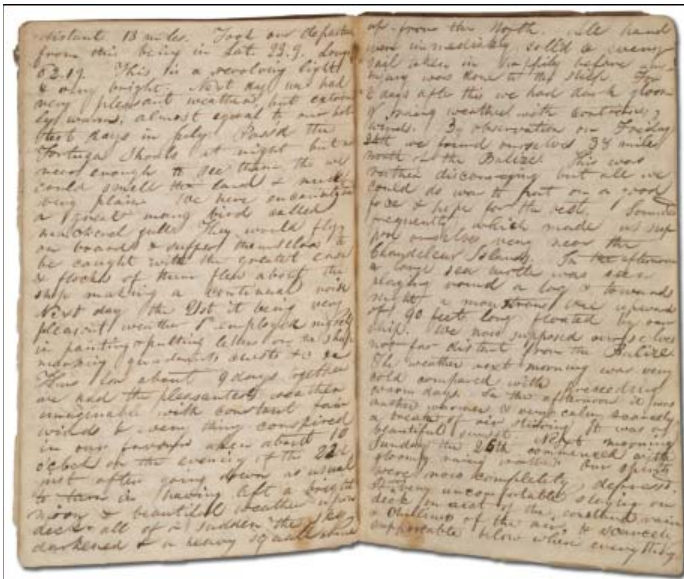 distant 13 miles. Took our departure
from this being in Lat. 23.9. Long
82.19. This is a revolving light
& very bright. Next day we had
very pleasant weather, but extrem
ely warm, almost equal to our hot
test days in july. Passd the
Tortuga Shoals at night but
never enough to see them tho we
could smell the land &
being plain. We here encountered
a great many bird called
gulls They would fly
on board & suffer themselves to
be caught with the greatest ease
& flocks of them flew about the
ship making a continual noise
Next day the 21st it being very
pleasant weather I employed myself
in painting & putting letters on the ship
marking quadrants chests &c &c
Thus for about 9 days together
we had the pleasantest weather
imaginable with constant fair
winds & every thing conspired
in our favour when about 10
o'clock on the evening of the 22d
just after going down as usual
to turn in having left a bright
moon & beautiful weather upon
deck all of a sudden the sky
darkened & a heavy squall came
up from the North. All hands
were immediately calld & every
sail taken in happily before any
injury was done to the ship. For
2 days after this we had dark gloom
y rainy weather with contrary
winds. By observation on Friday
24th we found ourselves 38 miles
north of the Balize. This was
rather discouraging but all we
could do was to put on a good
face & hope for the best. Sounded
frequently which made us sup
pose ourselves very near the
Chandeleur Islands. In the afternoon
a large sea turtle was seen
playing round a log & towards
night a monstrous one upward
of 90 feet long floated by our
ship. We now supposed ourselves
not far distant from the Balize
The weather next morning was very
cold compared with preceeding
warm days. In the afternoon it was
rather warmer & very calm scarcely
a breath of air stirring. It was a
beautiful sunset. Next morning
Sunday the 26th commenced with
gloomy rainy weather. Our spirits
were now completely depressd
it being uncomfortable staying on
deck on acct of the constant rain
& chilliness of the air, & scarcely
supportable below when every thing